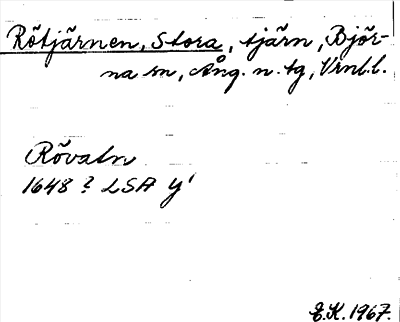 Rötjärnen, Stora, tjärn, Björ-
na sn, Ång. n. tg, Vrnl.l.
Rövatn
1648? LSA Y1
E.K. 1967.